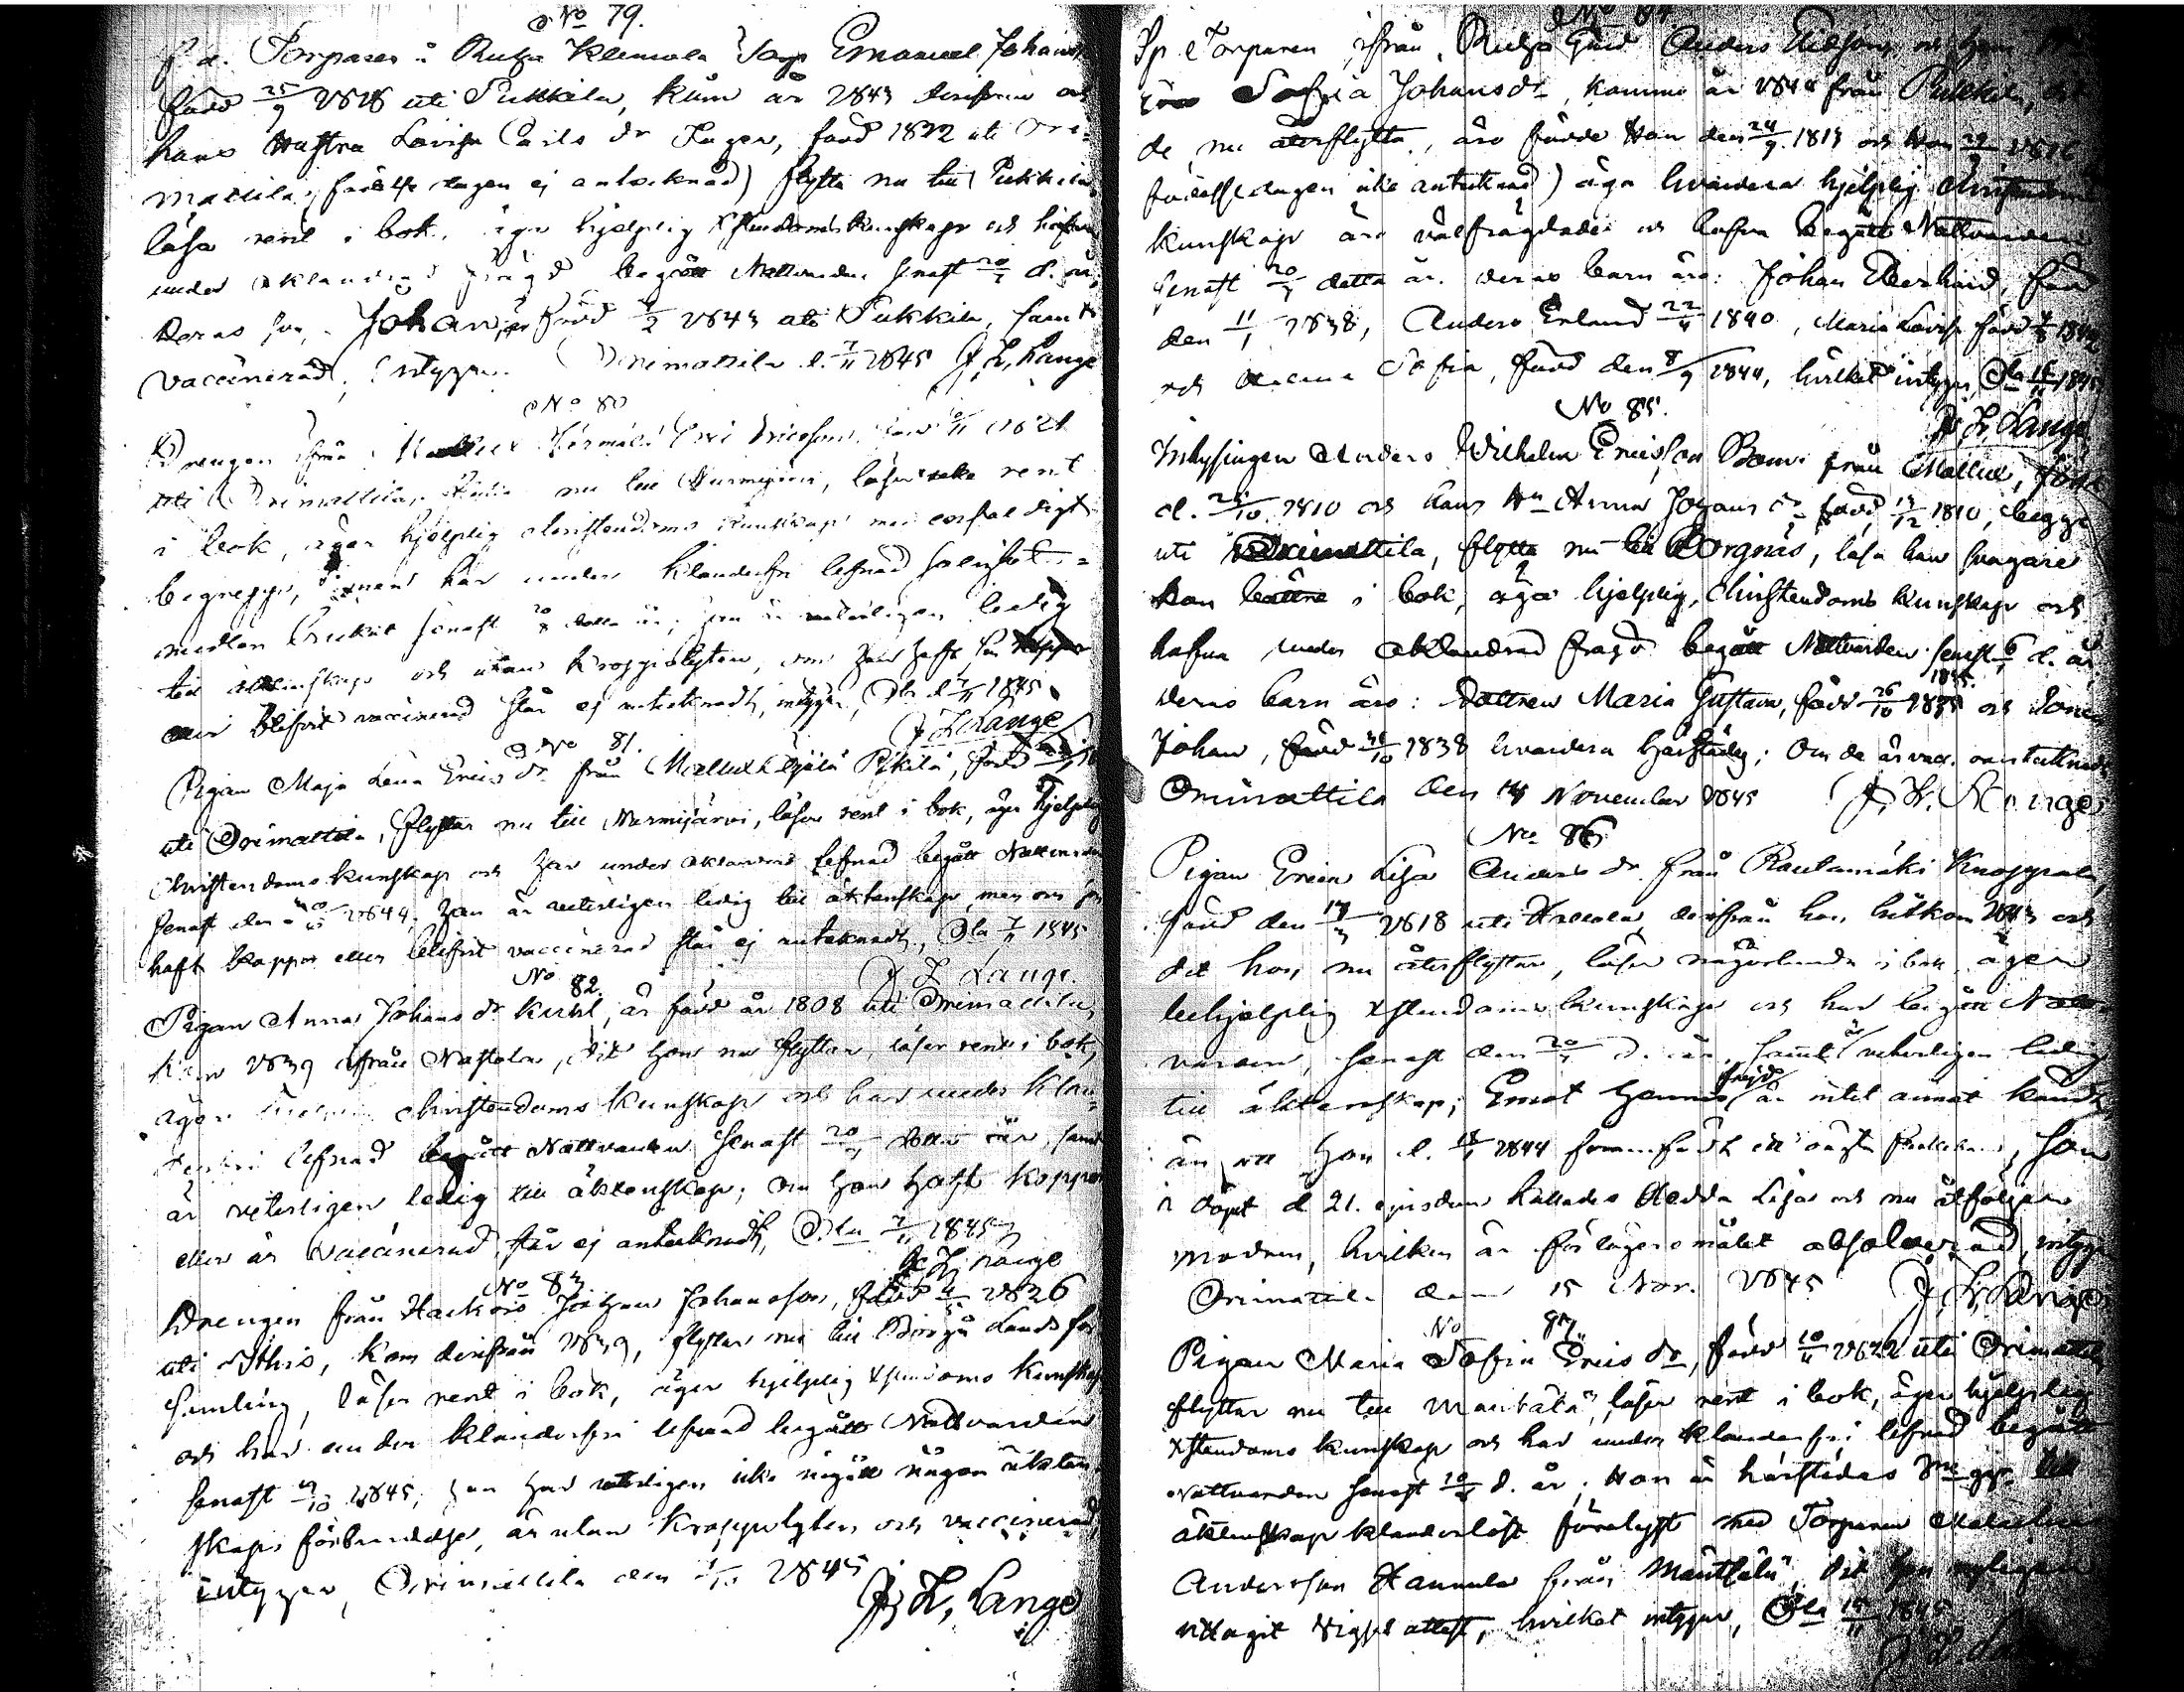 No 79.
f. d. Torparen i Ruha Klemola Jarp Emanuel Johanss
född 25/9 1818 uti Pukkila, kom år 1843 derifrån och
hans Hustru Lovisa Carls dr Lager, född 1822 uti Ori-
mattila, födelse dagen ej antecknad) flytta nu till Pukkila
läsa rent i bok, äga hjelplig Xstendomskunskap och hafva
under oklandrad frägd begått Nattvarden senast 20/7 d. år,
Deras son, Johan, är född 2/2 1843 uti Pukkila, samt
vaccinerad, intygar. Orimattila d. 7/11 1845 J. L. Lange
No 80
Drengen ifrån Mallusk Ericsson, född
uti Orimattila, flyttar nu till Nurmijärvi, läser rent
i bok, äger hjelplig christendoms kunskap med enfaldigt
begrepp, men har under klanderfri lefnad salighets-
medlen brukat senast 20/7 detta år; är veterligen ledig
till äktenskap och utan kroppslyten, om han haft
eller blifvit vaccinerad står ej antecknadt, intygar, Ola d. 7/11 1845.
J. L. Lange
No 81.
Pigan Maja Lena Erics dr från Mallusk Pykilä, född
uti Orimattila, flyttar nu till Nurmijärvi, läser rent i bok, äger hjelplig
Christendoms kunskap och har under oklandrad lefnad begått Nattvarden
senast den 1844; hon är veterligen ledig till äktenskap, men om hon
haft koppor eller blifvit vaccinerad står ej antecknadt, Ola 7/11 1845
J. L. Lange.
No 82.
Pigan Anna Johans dr Kuhl, är född år 1808 uti Orimattila,
kom 1839 ifrån Nastola, dit hon nu flyttar läser rent i bok,
äger christendoms kunskap och har under klan-
derfri lefnad begått Nattvarden senast 20/7 detta år, samt
är veterligen ledig till äktenskap; om hon haft koppor
eller är vaccinerad, står ej antecknadt, Ola 7/11 1845
J. L. Lange
No 83
Drengen från Hackois Johan Johansson, född 4/5 1826
uti Ithis, kom derifrån 1839, flyttar nu till Borgå Lands för-
samling, läser rent i bok, äger hjelplig Xstendoms kunskap
och har under klanderfri lefnad begått Nattvarden
senast 1845; han har veterligen icke ingått någon äkten-
skaps förbindelse, är utan kroppslyten och vaccinerad,
intygar, Orimattila den 1845
J. L. Lange
No 84
Sp. Torparen ifrån Ruha Gård Anders Ericsson och hans
Sofia Johansdr, kommo år 1844 från Pukkila, dit
de nu återflytta, äro födde Han den 24/9 1813 och Hon 1816
födelsedagen icke antecknad) äga hvardera hjelplig christendoms
kunskap äro välfrägdade och hafva begått Nattvarden
senast 20/7 detta år. deras barn äro: Johan Eberhard, född
den 11/1 1838, Anders Erland 22/4 1840, Maria Lovisa född 1842
och Sofia, född den 8/9 1844, hvilket intygar, Ola 14/11 1845
J. L. Lange
No 85.
Inhysingen Anders Wilhelm Ericsson Bom från Mallusk, född
d. 25/10 1810 och hans Hu Anna Johans dr född 13/12 1810, begge
uti Orimattila, flytta nu till Borgnäs, läsa han svagare
hon bättre i bok, äga hjelplig, Christendoms kunskap och
hafva under oklandrad frägd begått Nattvarden senast d. år,
deras barn äro: Dottren Maria Gustava, född 26/10 1835 och Sonen
Johan, född 1838 hvardera härstädes; Om de är vacc. oantecknadt
Orimattila den 14 November 1845 J. L. Lange
No 86
Pigan Erica Lisa Anders dr från Rautamäki Knoppala,
född den 14/3 1818 uti derifrån hon hitkom 1843 och
dit hon nu återflyttar, läser någorlunda i bok, äger
behjelplig Xstendoms kunskap och har begått Natt-
varden, senast den 20/7 d. år, samt är veterligen ledig
till äktenskap; Emot hennes frejd är intet annat kändt
än att Hon d. 18/1 1844 framfödt ett oägta flickebarn, som
i döpet d 21. ejusdem kallades Hedda Lisa och nu åtföljer
modren, hvilken är för lägersmålet absolverad, intygar
Orimattila den 15 Nov. 1845 J. L. Lange
No 87
Pigan Maria Sofia Erics dr, född 10/4 1822 uti Orimattila
flyttar nu till Mäntsälä, läser rent i bok, äger hjelplig
Xstendoms kunskap och har under klanderfri lefnad begått
Nattvarden senast 20/7 d. år; Hon är härstädes 3ne ggr. till
äktenskap klanderlöst förelyst med Torparen
Andersson Hannula från Mäntsälä, dit hon nyligen
uttagit Vigsel attest, hvilket intygar, Ola 15/11 1845